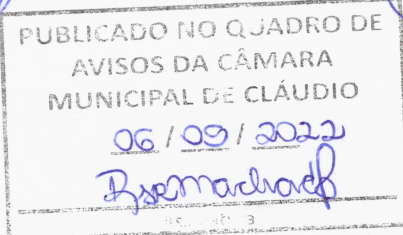 PUBLICADO NO QUADRO DE
AVISOS DA CÂMARA
MUNICIPAL DE CLÁUDIO
06 / 09 / 2022